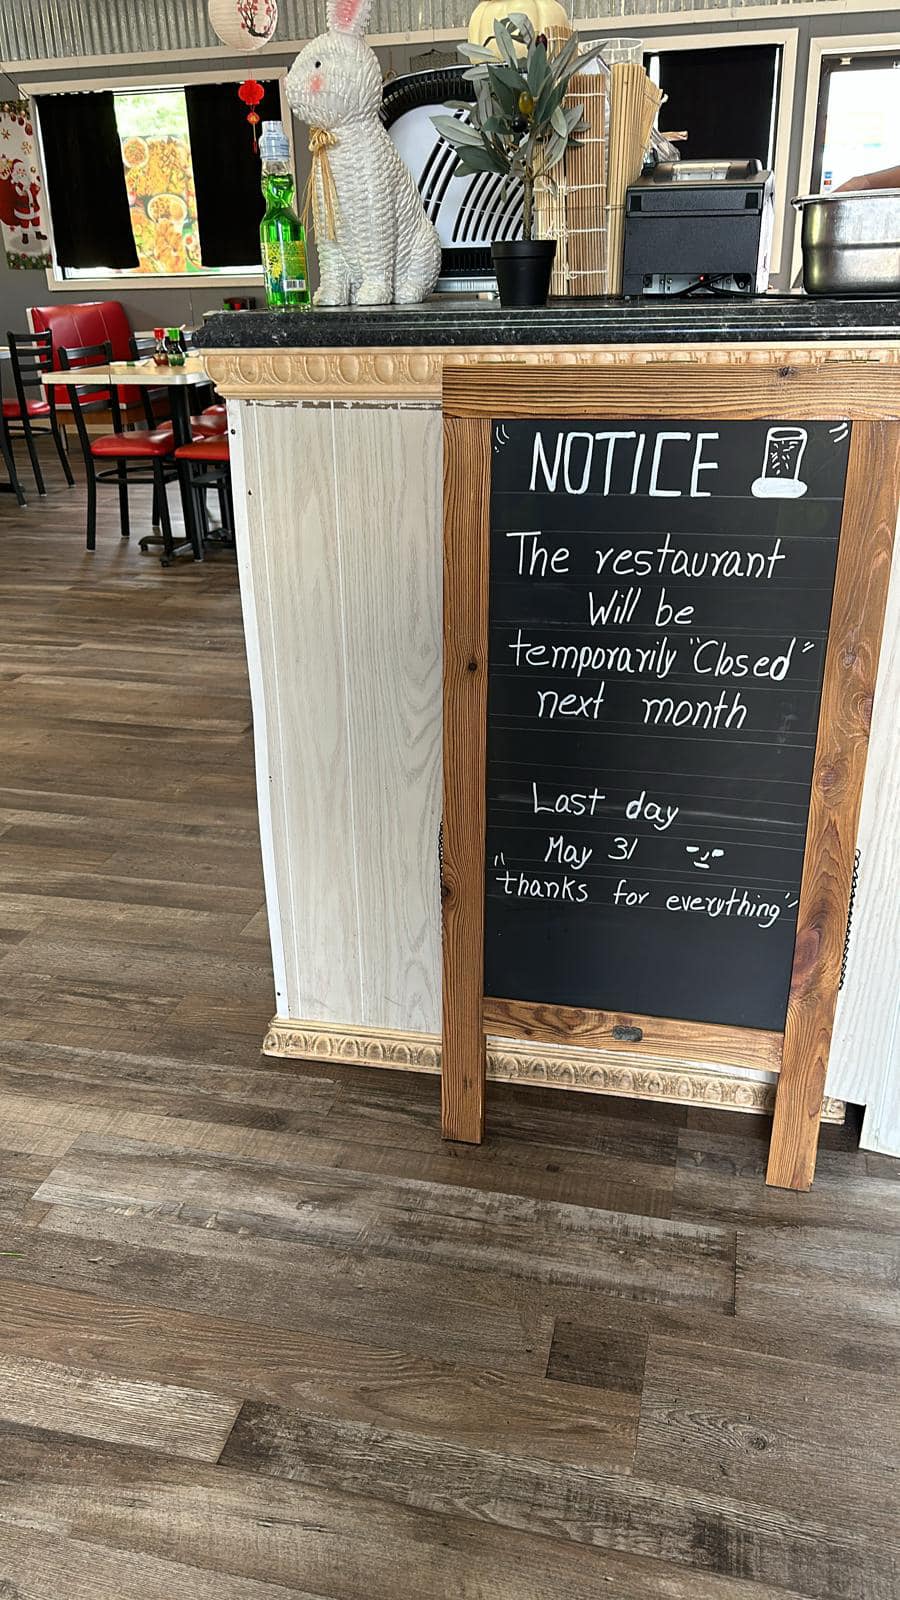 NOTICE
The restaurant
Will be
temporarily "Closed"
next month
Last day
May 31
"thanks for everything"